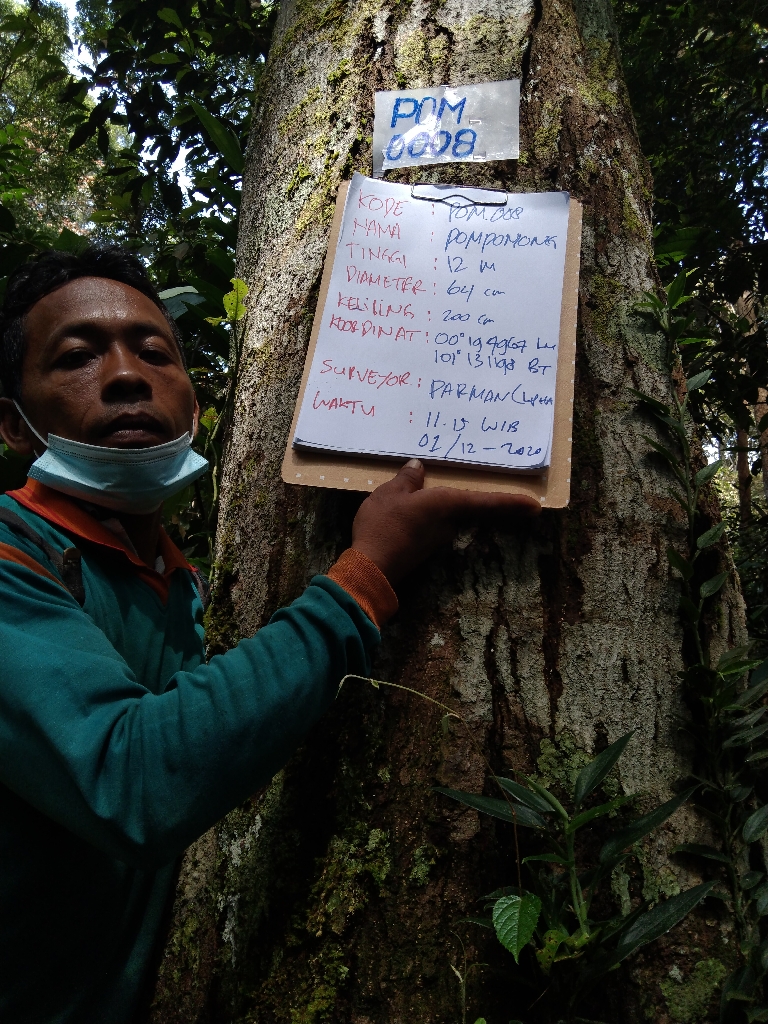 POM
0008
KODE : POM.008
NAMA : POMPOMONG
TINGGI : 12 M
DIAMETER : 64 cm
KELILING : 200 cm
KOORDINAT : 00° 19.4967 LU
101° 13 1198 BT
SURVEYOR : PARMAN (
WAKTU : 11.15 WIB
01/12-2020